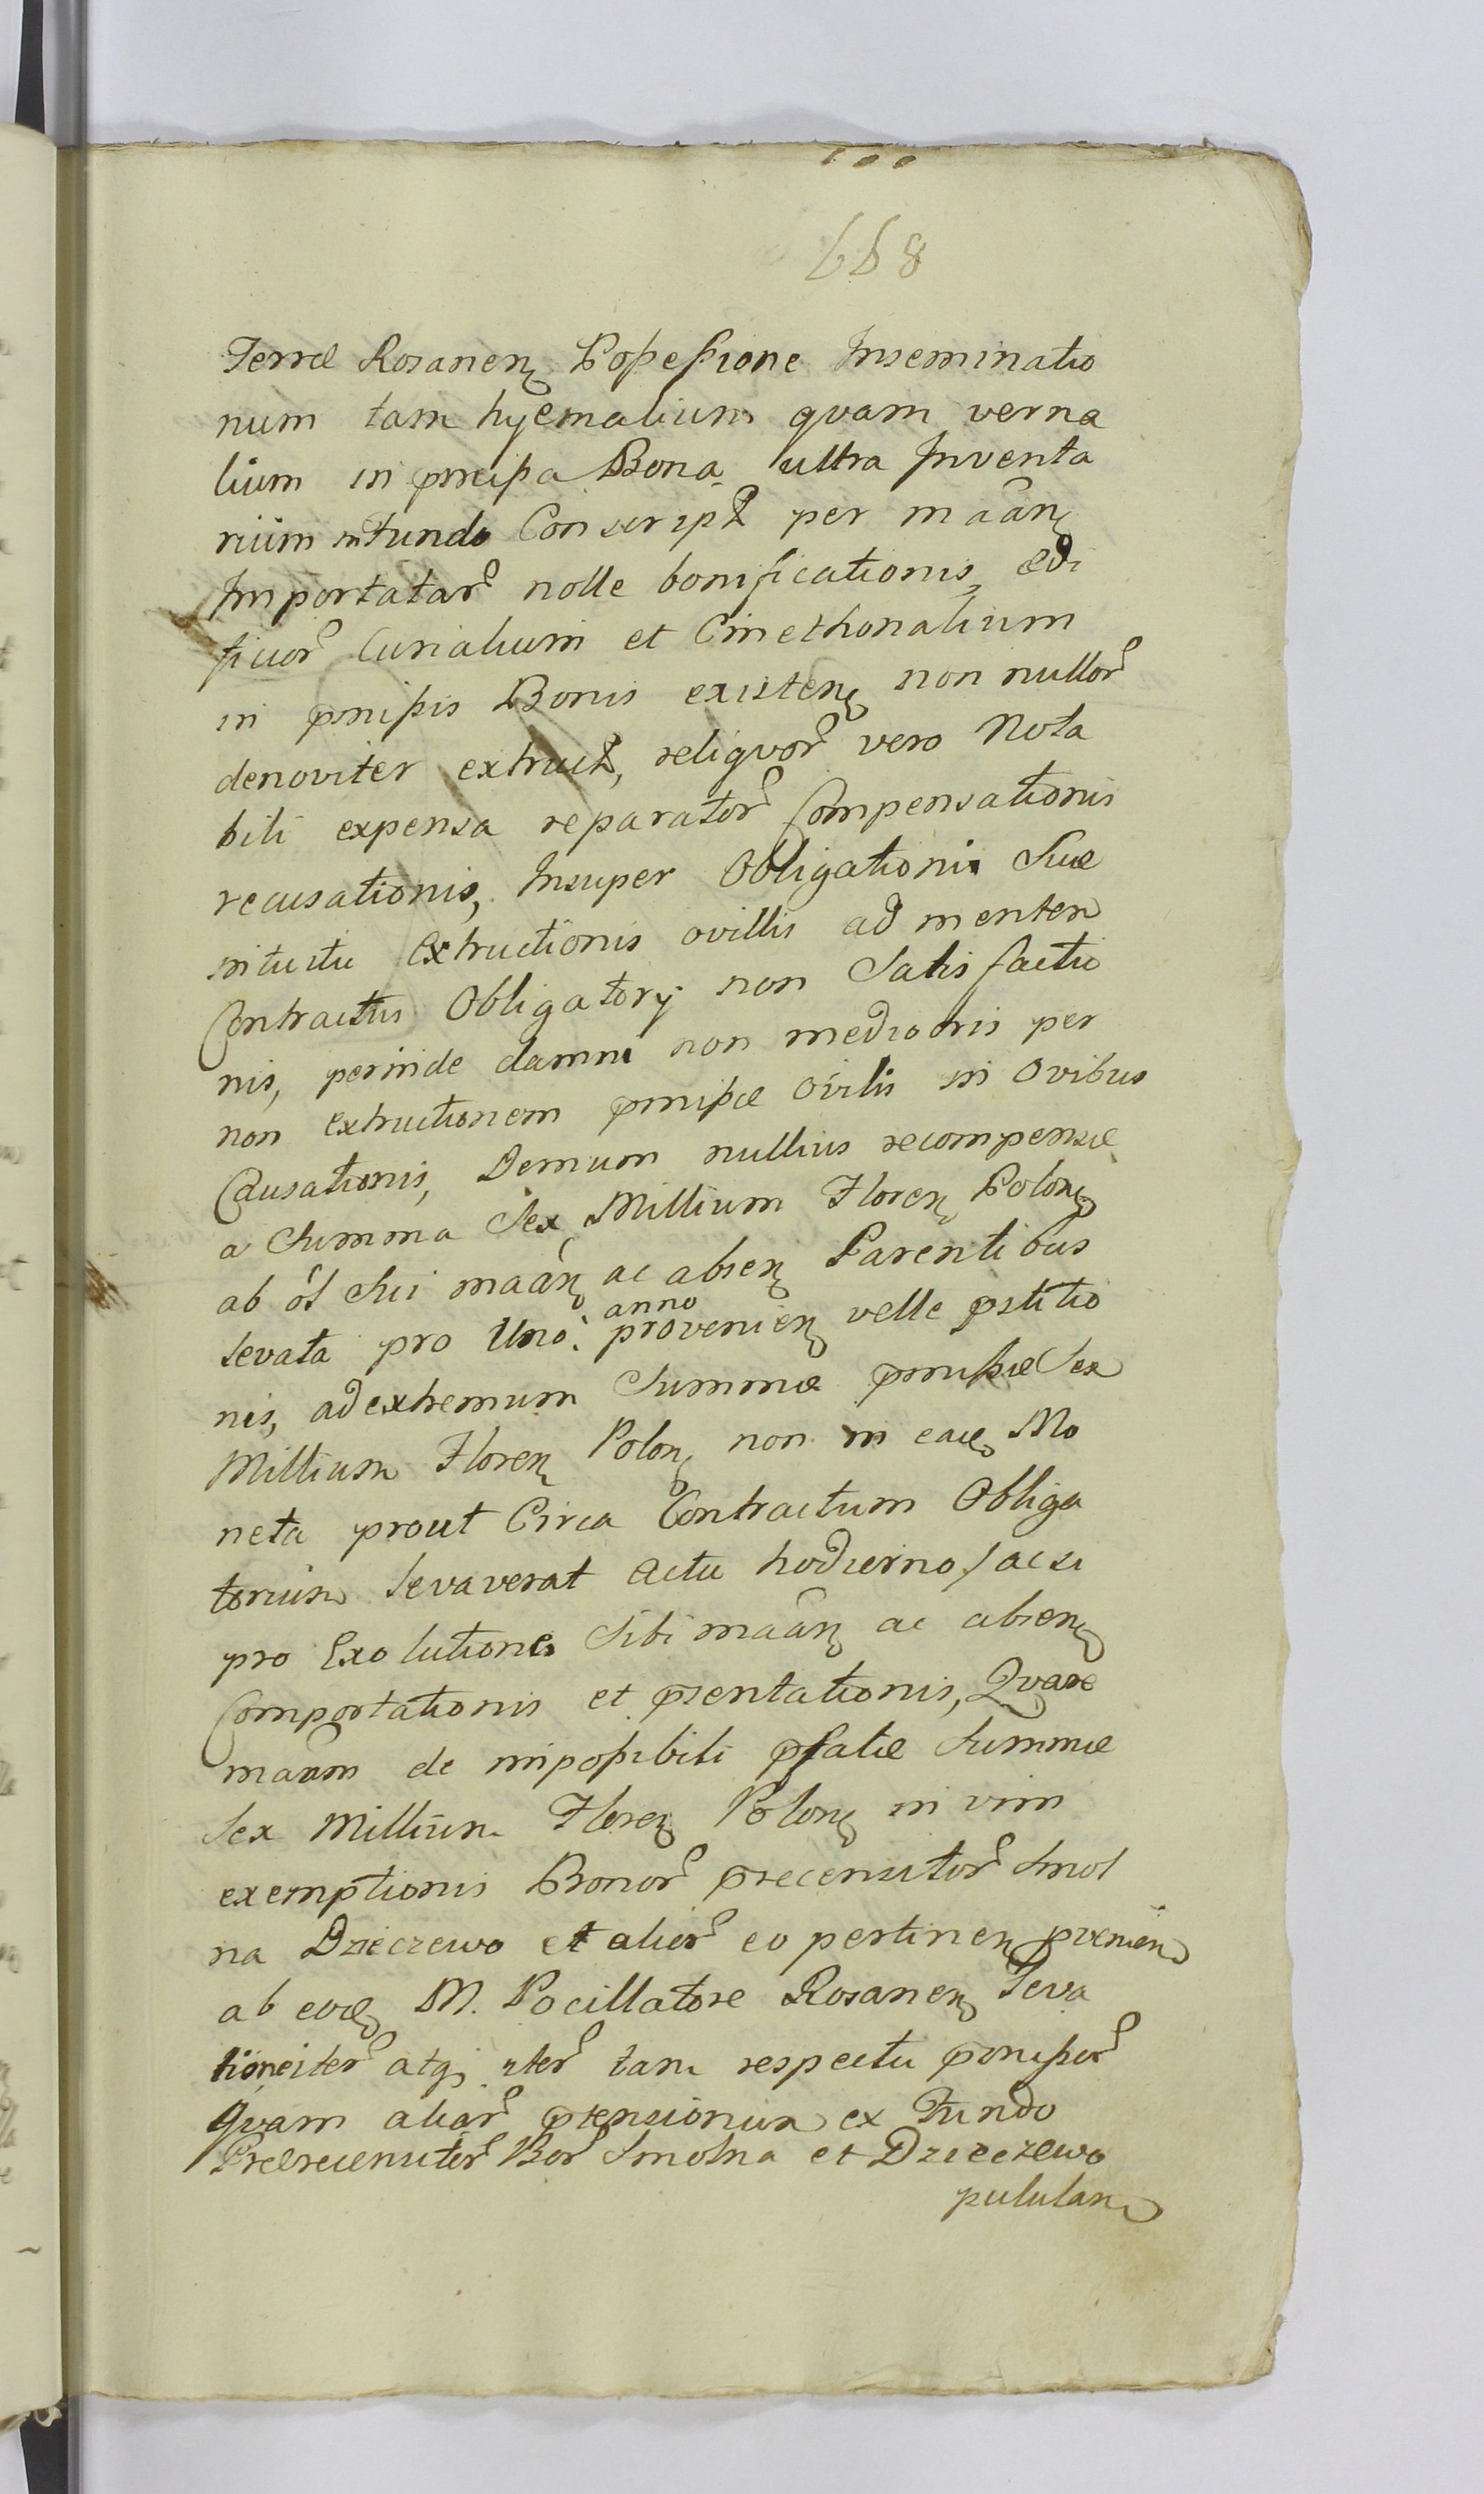 668
Terræ Rosanen Possessione Inseminatio
num tam hyemalium qvam verna
lium in pmissa Bona ultra Inventa
rium in Fundo Conscript per maãn
Importatar nolle bonificationis, ædi
ficior Curialium et Cmethonalium
in pmissis Bonis existen non nullor
denoviter extruct, reliqvor vero Nota
bili expensa reparator Compensationis
recusationis, Insuper Obligationi Suæ
intuitu Extructionis ovillis ad mentem
Contractus Obligatorÿ non Satisfactio
nis, perinde damni non mediocris per
non extructionem pmissæ Ovilis in Ovibus
Causationis, Demum nullius recompensæ
a Summa Sex Millium Floren Polon
ab ol Sui maãn ac absen Parentibus
levata pro Uno anno provenien velle pstitio
nis, ad extremum Summæ pmissæ Sex
Millium Floren Polon non in eade Mo
neta prout Circa Contractum Obliga
torium levaverat Actu hodierno, ac si
pro Exolutione Sibi maãn ac absen
Comportationis et psentationis, Qvare
maãm de impossibili pfatæ Summæ
Sex Millium Floren Polon in vim
exemptionis Bonor precensitor Smol
na Dzieczewo et alior eo pertinen pvenien
ab eode M. Pocillatore Rosanen leva
tione iter atq iter tam respectu pmissor
Qvam aliar ptensionum ex Fundo
Præreçensitor Bor Smolna et Dzieczewo
pululan